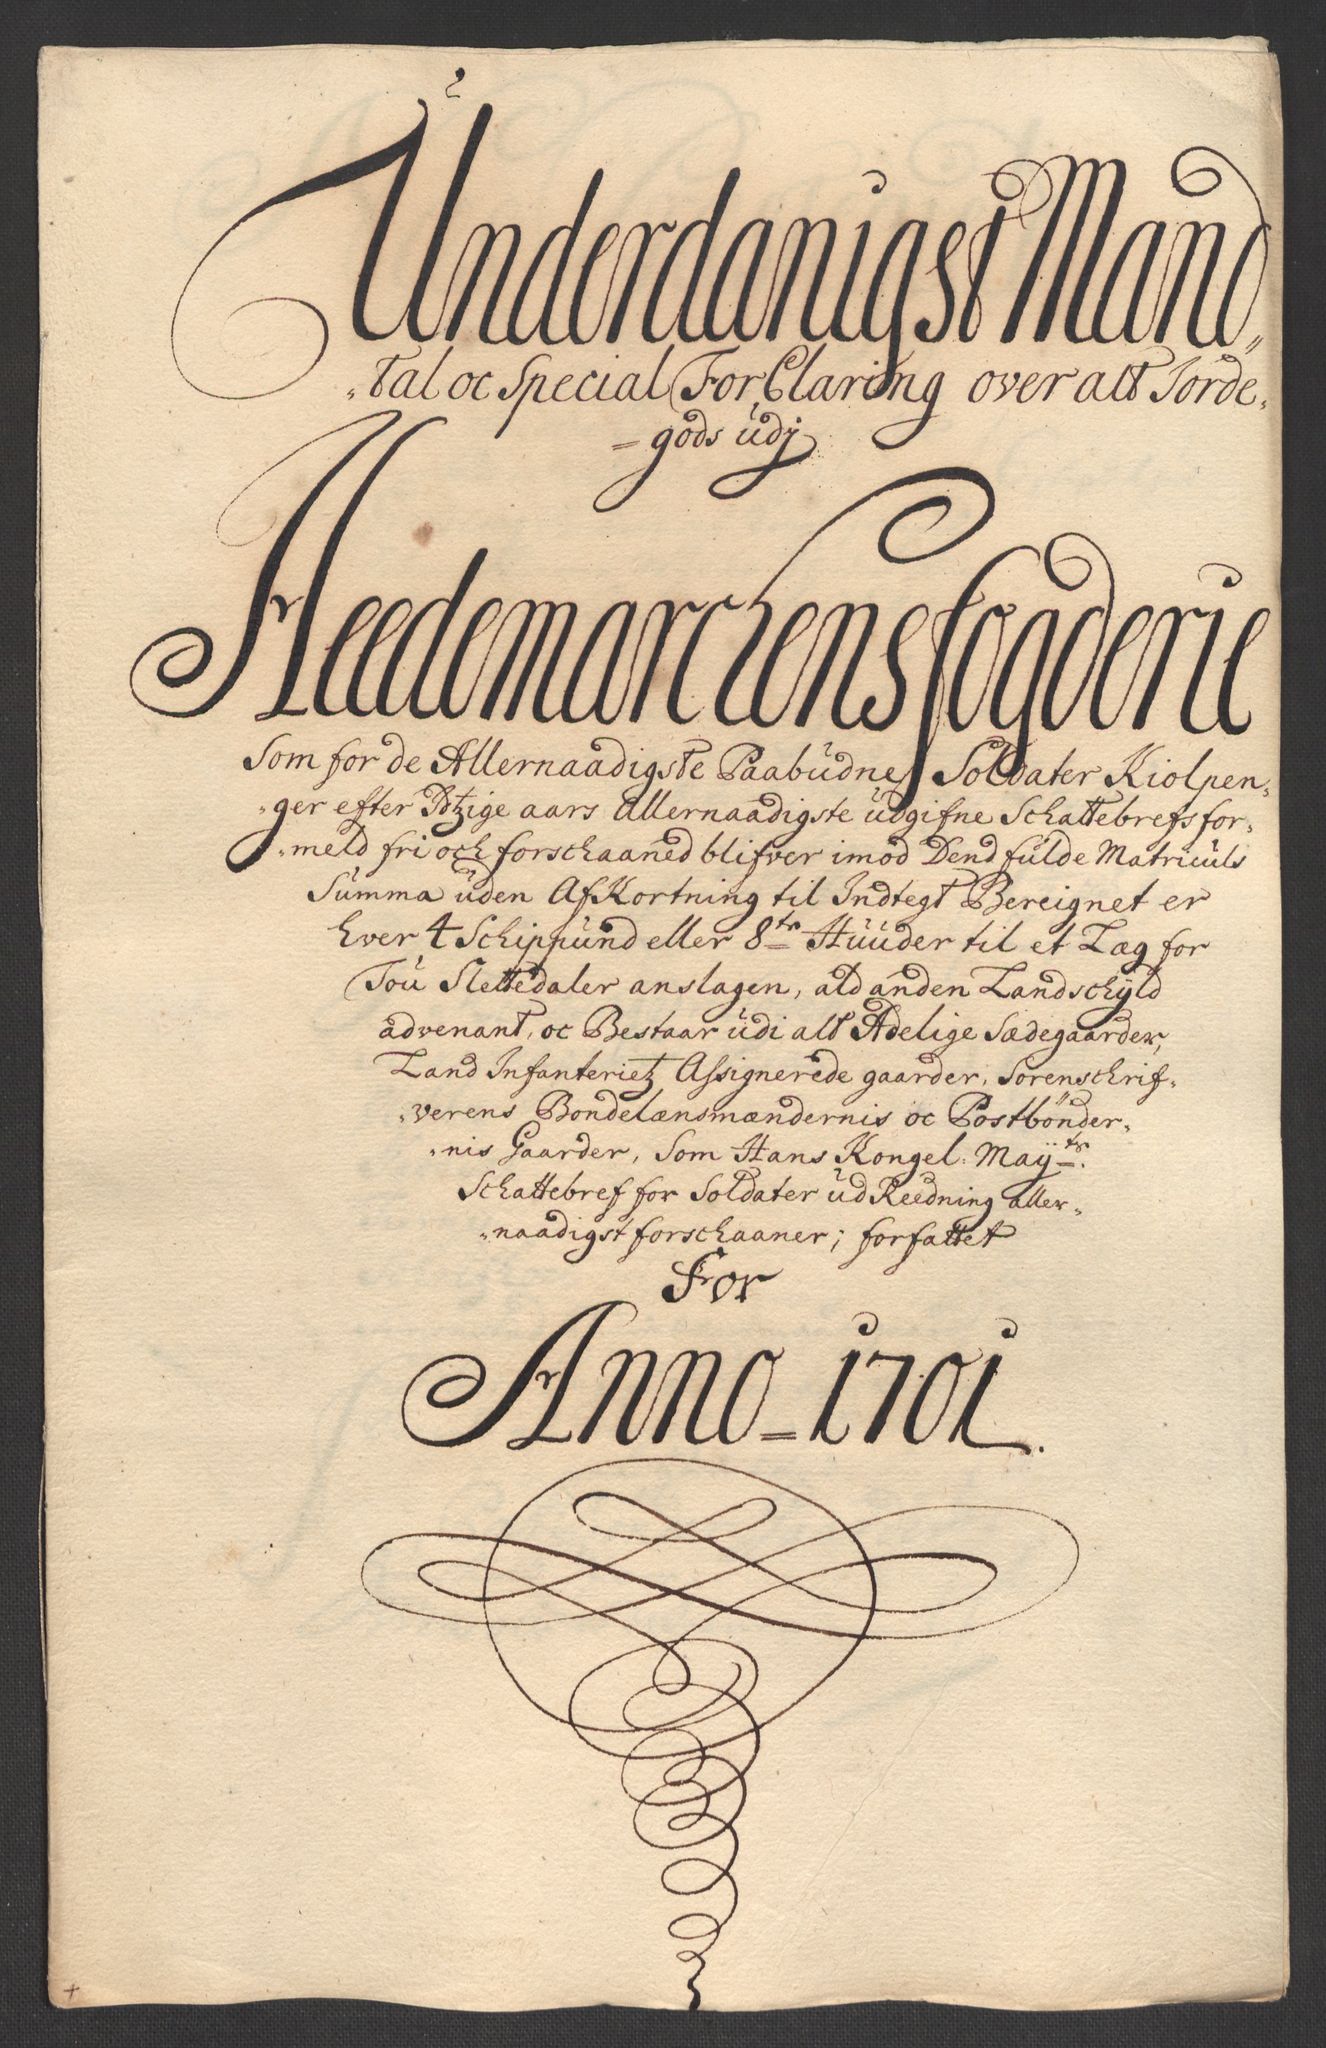 Underdanigst Mand„
„tal oc Special ForClaring over alt Jorde„
= gods udj
Heedemarckens fogderie
Som for de Allernaadigste Paabudne Soldater Kiolpen„
„ger efter Itzige aars Allernaadigste udgifne Schattebrefs for„
„meld fri och forschaaned blifver imod Dend fulde Matriculs
Summa uden AfKortning til Indtegt Bereignet er
hver 4 Schippund eller 8te Huuder til et Læg for
Tou Slettedaler anslagen, ald anden Landschyld
advenant, oc Bestaar udi alt Adelige Sædegaarder,
Land Infanterietz Assignerede gaarder, Sorenschrif„
„verens Bondelænsmændernis oc Postbönder„
„nis Gaarder, Som Hans Kongel: Mayts.
Schattebref for Soldater ud Reedning aller„
„naadigst forschaaner; forfattet
For
Anno = 1701.